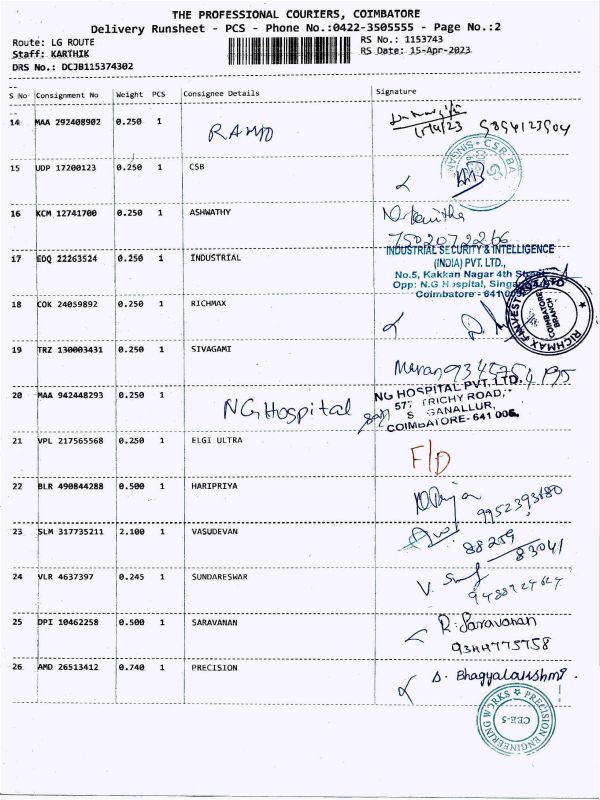 THE PROFESSIONAL COURIERS, COIMBATORE
Delivery Runsheet - PCS - Phone No.:0422-3505555 - Page No.:2
Route: LG ROUTE
Staff: KARTHIK
DRS No.: DCJB115374302
RS No.: 1153743
RS Date: 15-Apr-2023
S No Consignment No Weight PCS Consignee Details Signature
14 MAA 292408902 0.250 1 RAMO
15/4/23 9894123904
15 UDP 17200123 0.250 1 CSB
16 KCM 12741700 0.250 1 ASHWATHY
7502072266
17 EDQ 22263524 0.250 1 INDUSTRIAL
INDUSTRIAL SECURITY & INTELLIGENCE
(INDIA) PVT. LTD.,
No.5, Kakkan Nagar 4th Street
Opp: N.G Hospital,
Coimbatore - 641 005
18 COK 24059892 0.250 1 RICHMAX
RICHMAX FINVEST
COIMBATORE
BRANCH
19 TRZ 130003431 0.250 1 SIVAGAMI
20 MAA 942448293 0.250 1 NG Hospital
NG HOSPITAL PVT. LTD.
577, TRICHY ROAD,
GANALLUR,
COIMBATORE- 641 005.
21 VPL 217565568 0.250 1 ELGI ULTRA
F/D
22 BLR 490844288 0.500 1 HARIPRIYA
23 SLM 317735211 2.100 1 VASUDEVAN
88259
83041
24 VLR 4637397 0.245 1 SUNDARESWAR
25 DPI 10462258 0.500 1 SARAVANAN
R. Saravanan
9344775758
26 AMD 26513412 0.740 1 PRECISION
S. Bhagyalakshmi.
PRECISION ENGINEERING WORKS
CBE-5